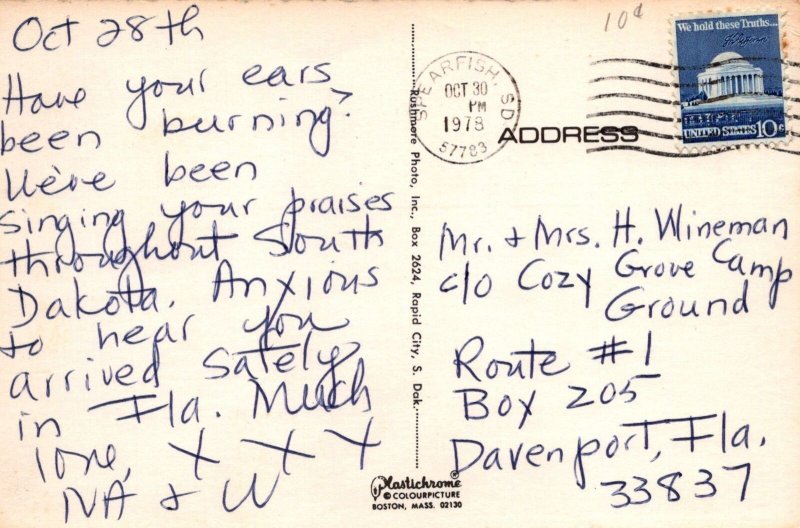 Oct 28th
Have your ears
been burning?
We've been
singing your praises
throughout South
Dakota. Anxious
to hear you
arrived safely
in Fla. Much
love, X X X
NA & W
Rushmore Photo, Inc., Box 2624, Rapid City, S. Dak.
Plastichrome®
© COLOURPICTURE
BOSTON, MASS. 02130
10¢
SPEARFISH, SD
OCT 30
PM
1978
57783
We hold these Truths...
UNITED STATES 10c
ADDRESS
Mr. + Mrs. H. Wineman
c/o Cozy Grove Camp
Ground
Route #1
Box 205
Davenport, Fla.
33837